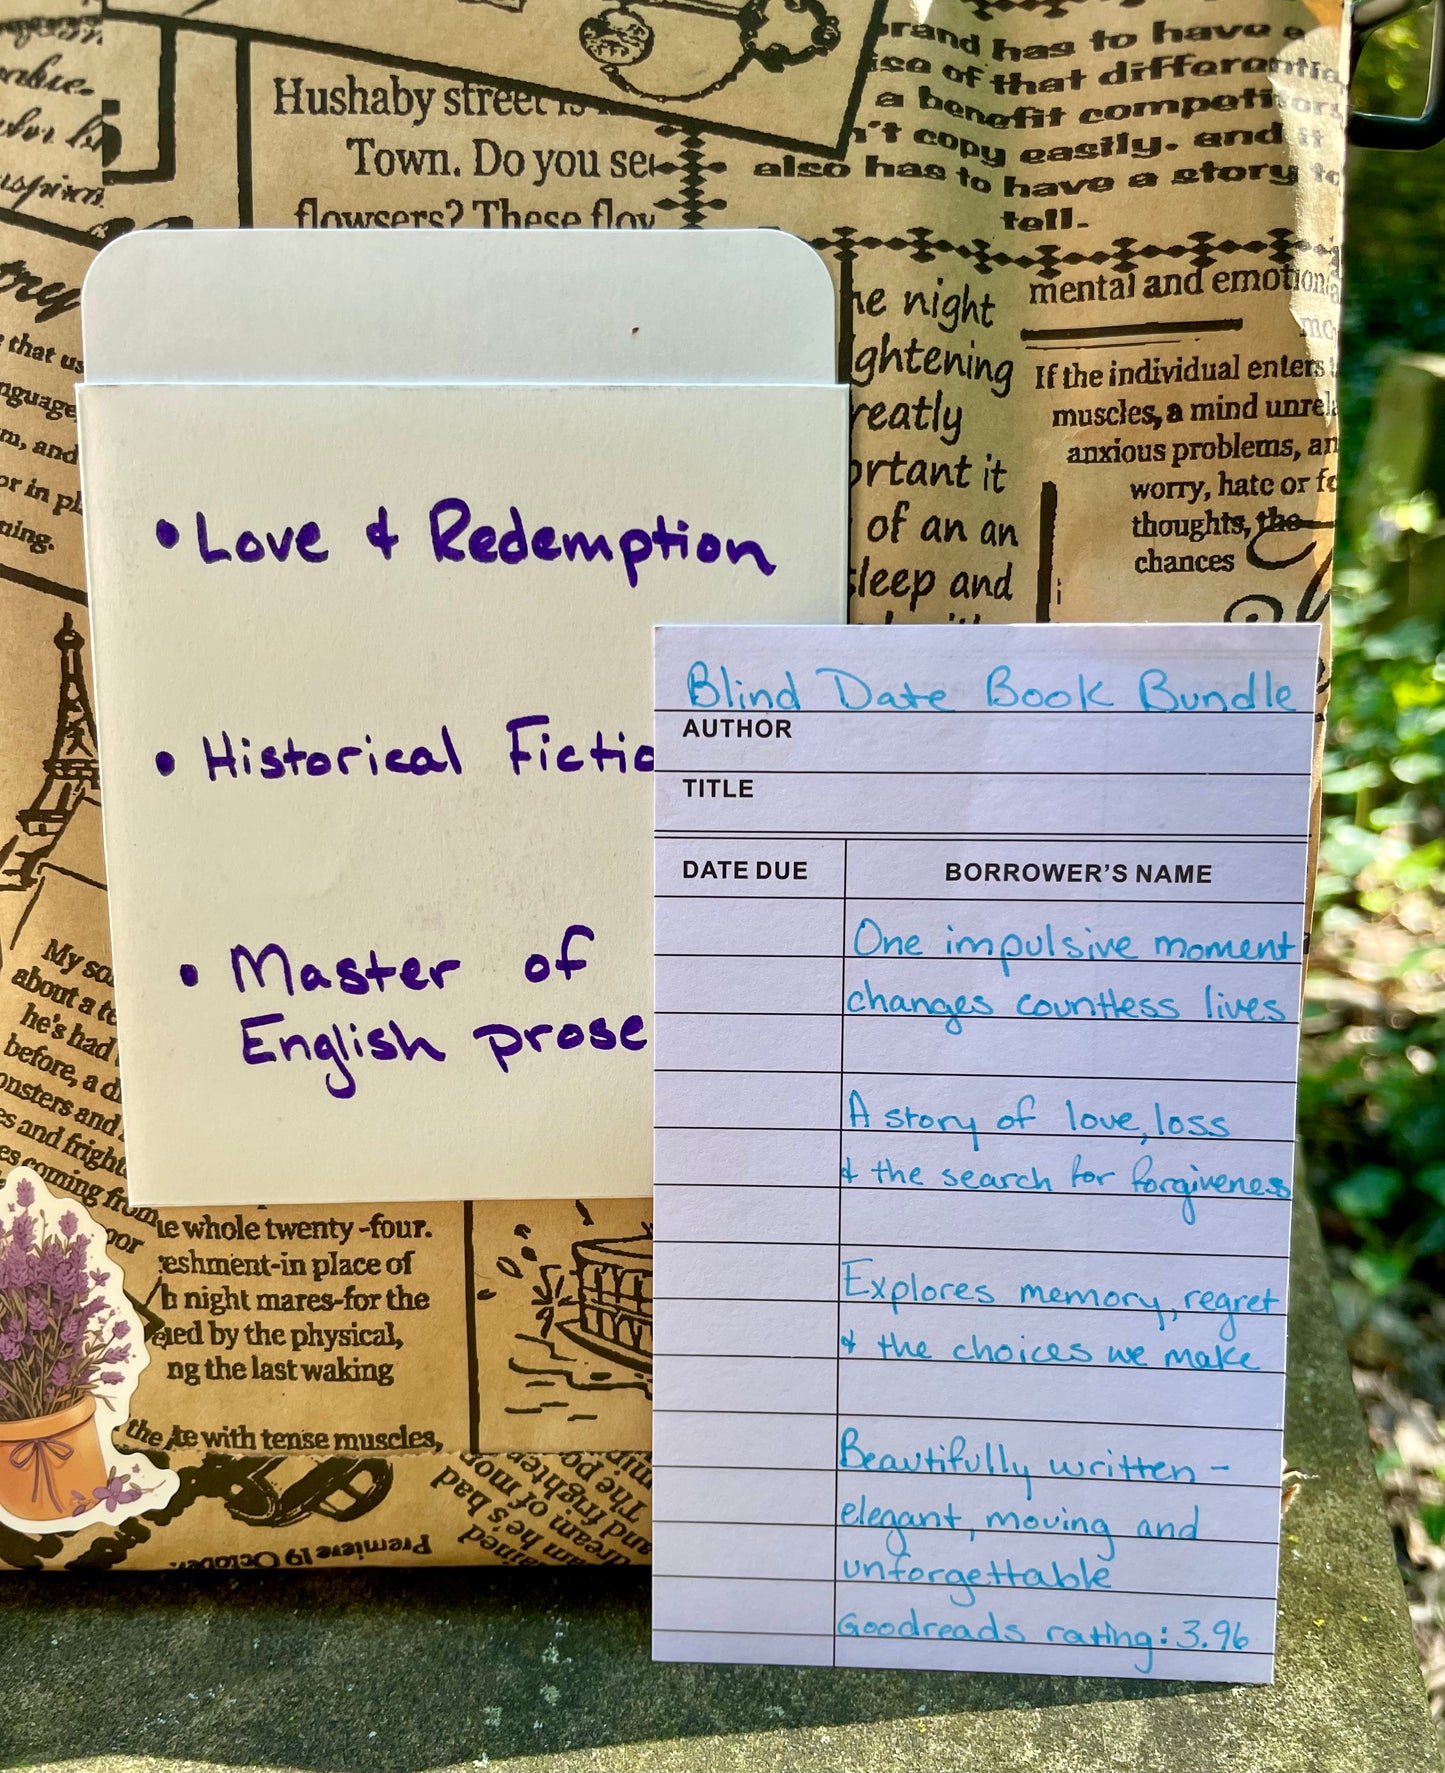 Hushaby street is
Town. Do you see
flowsers? These flow
rand has to have a
ise of that differentia
a benefit competitory
n't copy easily. and it
also has to have a story to
tell.
he night
ghtening
reatly
ortant it
of an an
sleep and
mental and emotiona
If the individual enters
muscles, a mind unrela
anxious problems, an
worry, hate or fe
thoughts, the
chances
that us
nguage
m, and
or in pl
ning.
• Love & Redemption
• Historical Fictio
• Master of
English prose
Blind Date Book Bundle
AUTHOR
TITLE
DATE DUE BORROWER'S NAME
One impulsive moment
changes countless lives
A story of love, loss
& the search for forgiveness
Explores memory, regret
& the choices we make
Beautifully written -
elegant, moving and
unforgettable
Goodreads rating: 3.96
My so
about a te
he's had
before, a d
onsters and
es and fright
es coming from
oor
le whole twenty -four.
eshment-in place of
h night mares-for the
ied by the physical,
ng the last waking
the te with tense muscles,
Premiere 19 October.